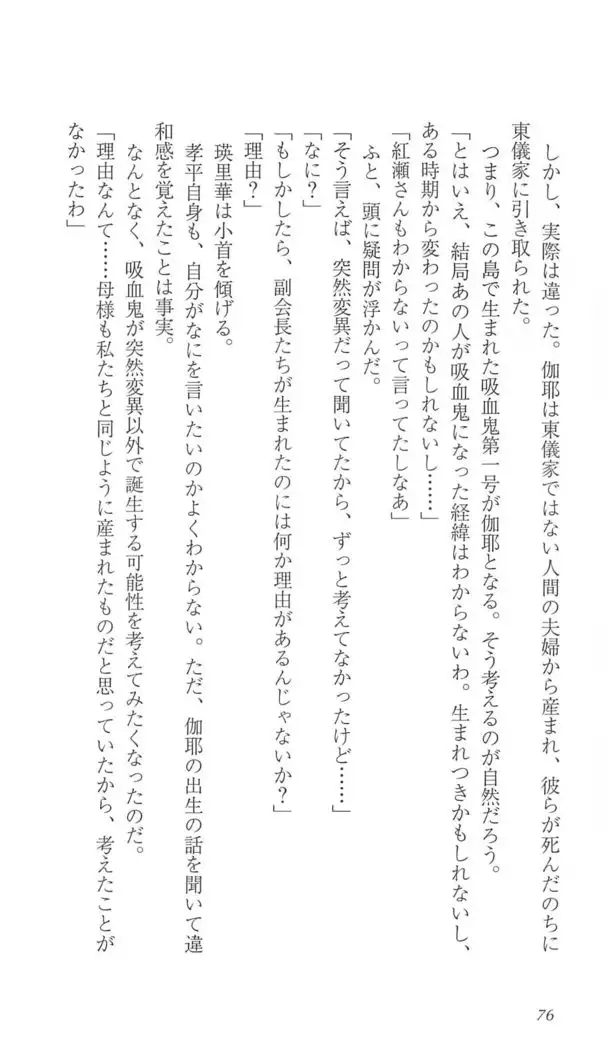 しかし、実際は違った。伽耶は東儀家ではない人間の夫婦から産まれ、彼らが死んだのちに
東儀家に引き取られた。
つまり、この島で生まれた吸血鬼第一号が伽耶となる。そう考えるのが自然だろう。
「とはいえ、結局あの人が吸血鬼になった経緯はわからないわ。生まれつきかもしれないし、
ある時期から変わったのかもしれないし……」
「紅瀬さんもわからないって言ってたしなあ」
ふと、頭に疑問が浮かんだ。
「そう言えば、突然変異だって聞いてたから、ずっと考えてなかったけど……」
「なに？」
「もしかしたら、副会長たちが生まれたのには何か理由があるんじゃないか？」
「理由？」
瑛里華は小首を傾げる。
孝平自身も、自分がなにを言いたいのかよくわからない。ただ、伽耶の出生の話を聞いて違
和感を覚えたことは事実。
なんとなく、吸血鬼が突然変異以外で誕生する可能性を考えてみたくなったのだ。
「理由なんて……母様も私たちと同じように産まれたものだと思っていたから、考えたことが
なかったわ」
76